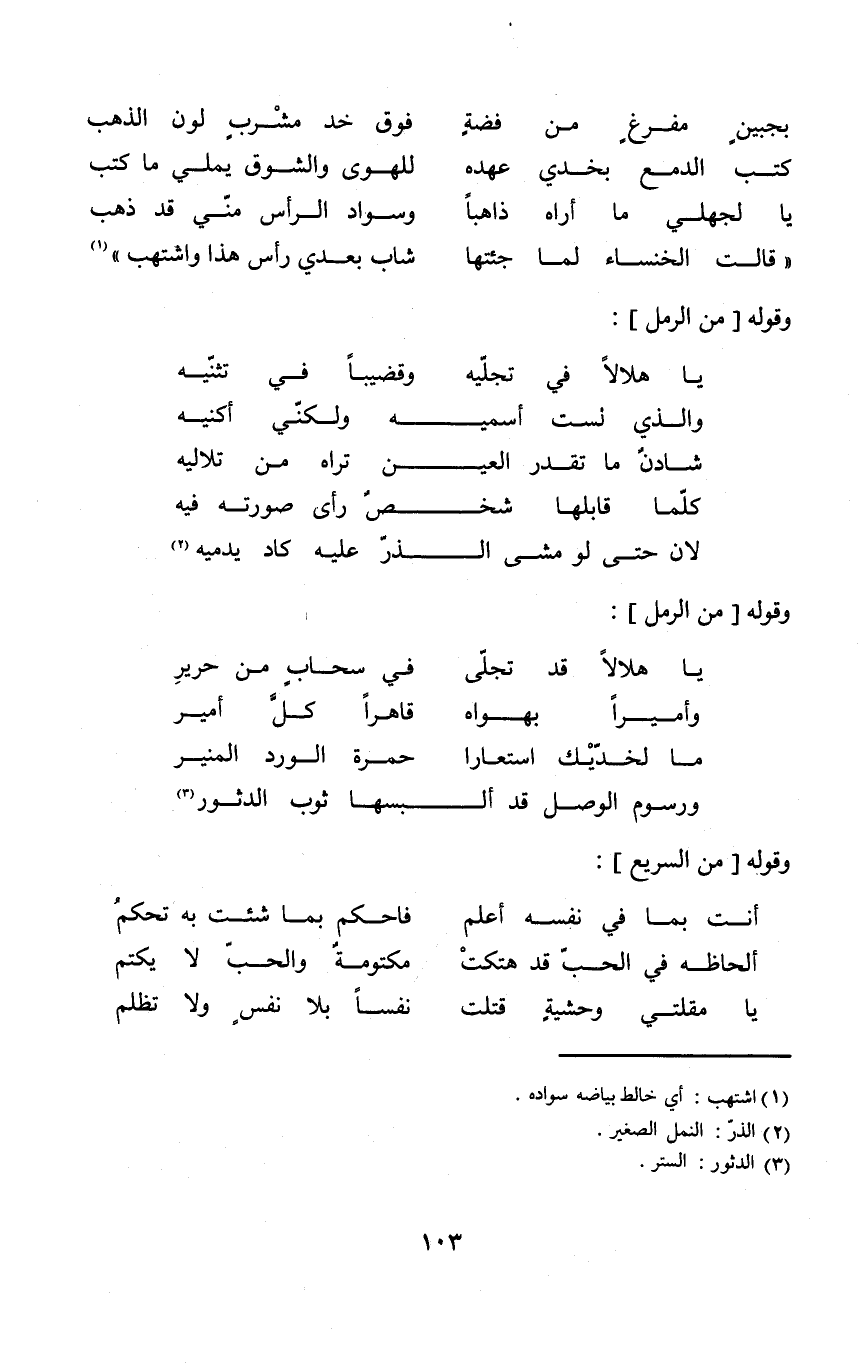 بجبينٍ مفرغٍ من فضةٍ فوق خد مشْربٍ لون الذهب
كتب الدمع بخدي عهده للهوى والشوق يملي ما كتب
يا لجهلي ما أراه ذاهباً وسواد الرأس منّي قد ذهب
« قالت الخنساء لما جئتها شاب بعدي رأس هذا واشتهب » (١)
وقوله [ من الرمل ] :
يا هلالاً في تجلّيه وقضيباً في تثنّيه
والذي لست أسميـــه ولكنّي أكنيه
شادنٌ ما تقدر العيـــن تراه من تلاليه
كلّما قابلها شخـــصٌ رأى صورته فيه
لان حتى لو مشى الـــذرّ عليه كاد يدميه (٢)
وقوله [ من الرمل ] :
يا هلالاً قد تجلّى في سحابٍ من حريرِ
وأميراً بهواه قاهراً كلَّ أمير
ما لخدّيْك استعارا حمرة الورد المنير
ورسوم الوصل قد ألـــبسها ثوب الدثور (٣)
وقوله [ من السريع ] :
أنت بما في نفسه أعلم فاحكم بما شئت به تحكمُ
ألحاظه في الحبّ قد هتكتْ مكتومةٌ والحبّ لا يكتم
يا مقلتي وحشيةٍ قتلت نفساً بلا نفسٍ ولا تظلم
(١) اشتهب : أي خالط بياضه سواده .
(٢) الذرّ : النمل الصغير .
(٣) الدثور : الستر .
١٠٣